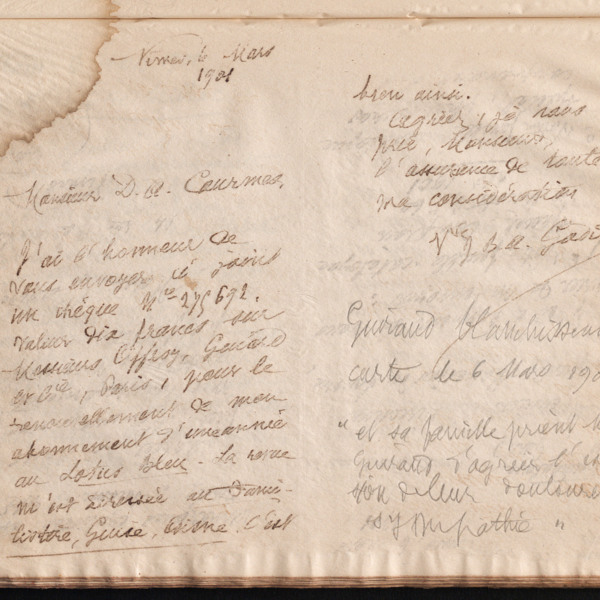 Nimes, le Mars
1901
Monsieur D. A. Courmes,
J'ai l'honneur de
vous envoyer ci joint
un chèque No 275 692.
valeur dix francs sur
Messieurs Offroy, Guiard
et Cie, Paris, pour le
renouvellement de mon
abonnement d'une année
au Lotus Bleu. La revue
m'est adressée au Fami-
listère, Guise, Aisne. C'est
bien ainsi.
Agréez, je vous
prie, Monsieur,
l'assurance de toute
ma considération
Vve J. B. A. Godin
Guiraud
carte le 6 Mars 190
" et sa famille prient
Guiraud d'agréer l'
son de leur
sympathie "